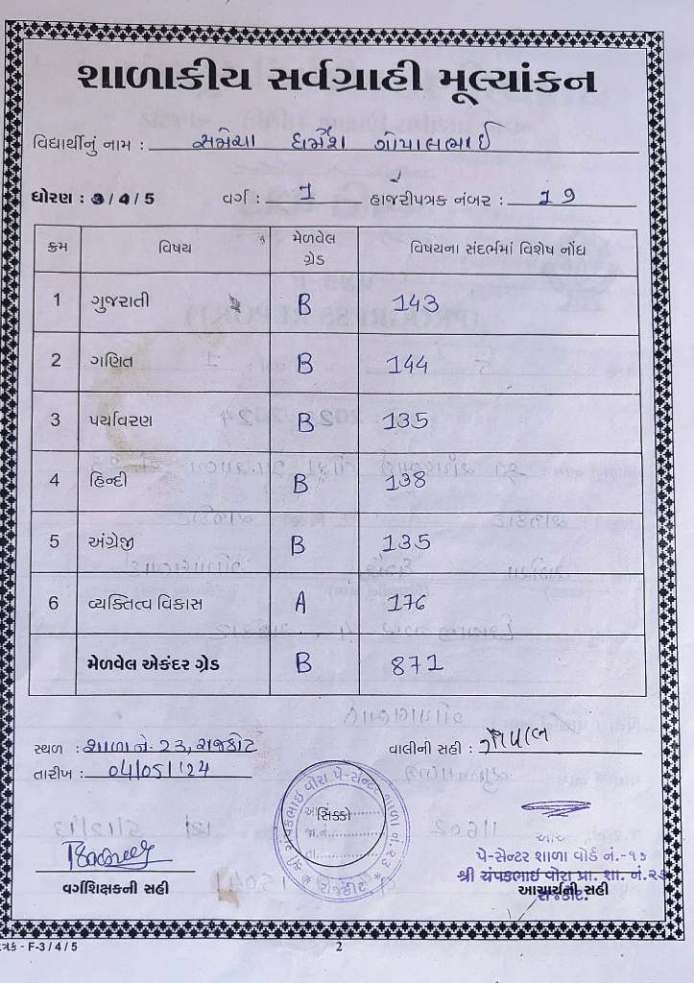 શાળાકીય સર્વગ્રાહી મૂલ્યાંકન
વિદ્યાર્થીનું નામ : સમેચા ધર્મેશ ગોપાલભાઈ
ધોરણ : 3 / 4 / 5 વર્ગ : 1 હાજરીપત્રક નંબર : 19
ક્રમ વિષય મેળવેલ ગ્રેડ વિષયના સંદર્ભમાં વિશેષ નોંધ
1 ગુજરાતી B 143
2 ગણિત B 144
3 પર્યાવરણ B 135
4 હિન્દી B 138
5 અંગ્રેજી B 135
6 વ્યક્તિત્વ વિકાસ A 176
મેળવેલ એકંદર ગ્રેડ B 871
સ્થળ : શાળા નં. 23, રાજકોટ વાલીની સહી : ગોપાલ
તારીખ : 04/05/'24
સિક્કો
વર્ગશિક્ષકની સહી
પે-સેન્ટર શાળા વોર્ડ નં.-૧૩
શ્રી ચંપકભાઈ વોરા પ્રા. શા. નં.૨૩
આચાર્યની સહી
રાજકોટ.
ત્રક - F-3 / 4 / 5 2